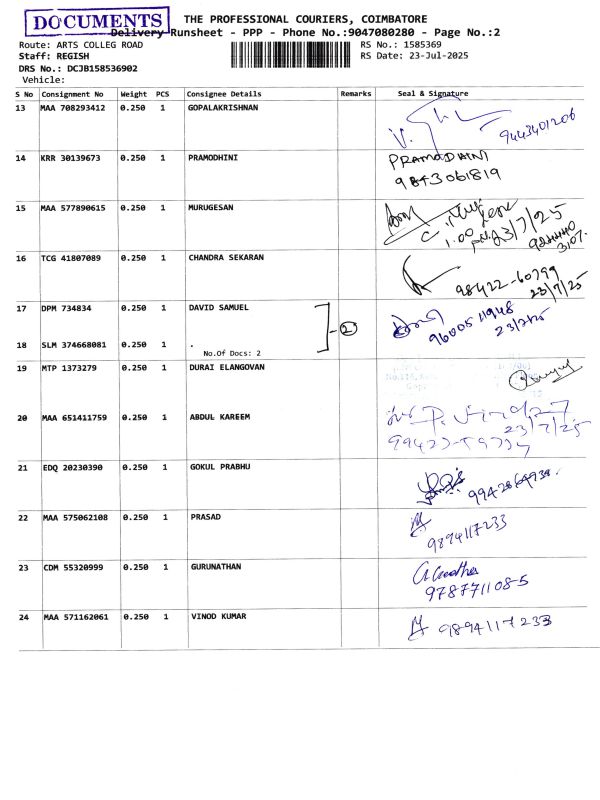 DOCUMENTS
THE PROFESSIONAL COURIERS, COIMBATORE
Delivery Runsheet - PPP - Phone No.:9047080280 - Page No.:2
Route: ARTS COLLEG ROAD
RS No.: 1585369
Staff: REGISH
RS Date: 23-Jul-2025
DRS No.: DCJB158536902
Vehicle:
S No Consignment No Weight PCS Consignee Details Remarks Seal & Signature
13 MAA 708293412 0.250 1 GOPALAKRISHNAN
9443401206
14 KRR 30139673 0.250 1 PRAMODHINI PRAMODHINI
9843061819
15 MAA 577890615 0.250 1 MURUGESAN
1.00 pm 23/7/25
16 TCG 41807089 0.250 1 CHANDRA SEKARAN
98422-60799
23/7/25
17 DPM 734834 0.250 1 DAVID SAMUEL
2
9600511948
23/7/25
18 SLM 374668081 0.250 1 .
No.Of Docs: 2
19 MTP 1373279 0.250 1 DURAI ELANGOVAN
20 MAA 651411759 0.250 1 ABDUL KAREEM
23/7/25
21 EDQ 20230390 0.250 1 GOKUL PRABHU
22 MAA 575062108 0.250 1 PRASAD
9894117233
23 CDM 55320999 0.250 1 GURUNATHAN
9787711085
24 MAA 571162061 0.250 1 VINOD KUMAR
9894117233